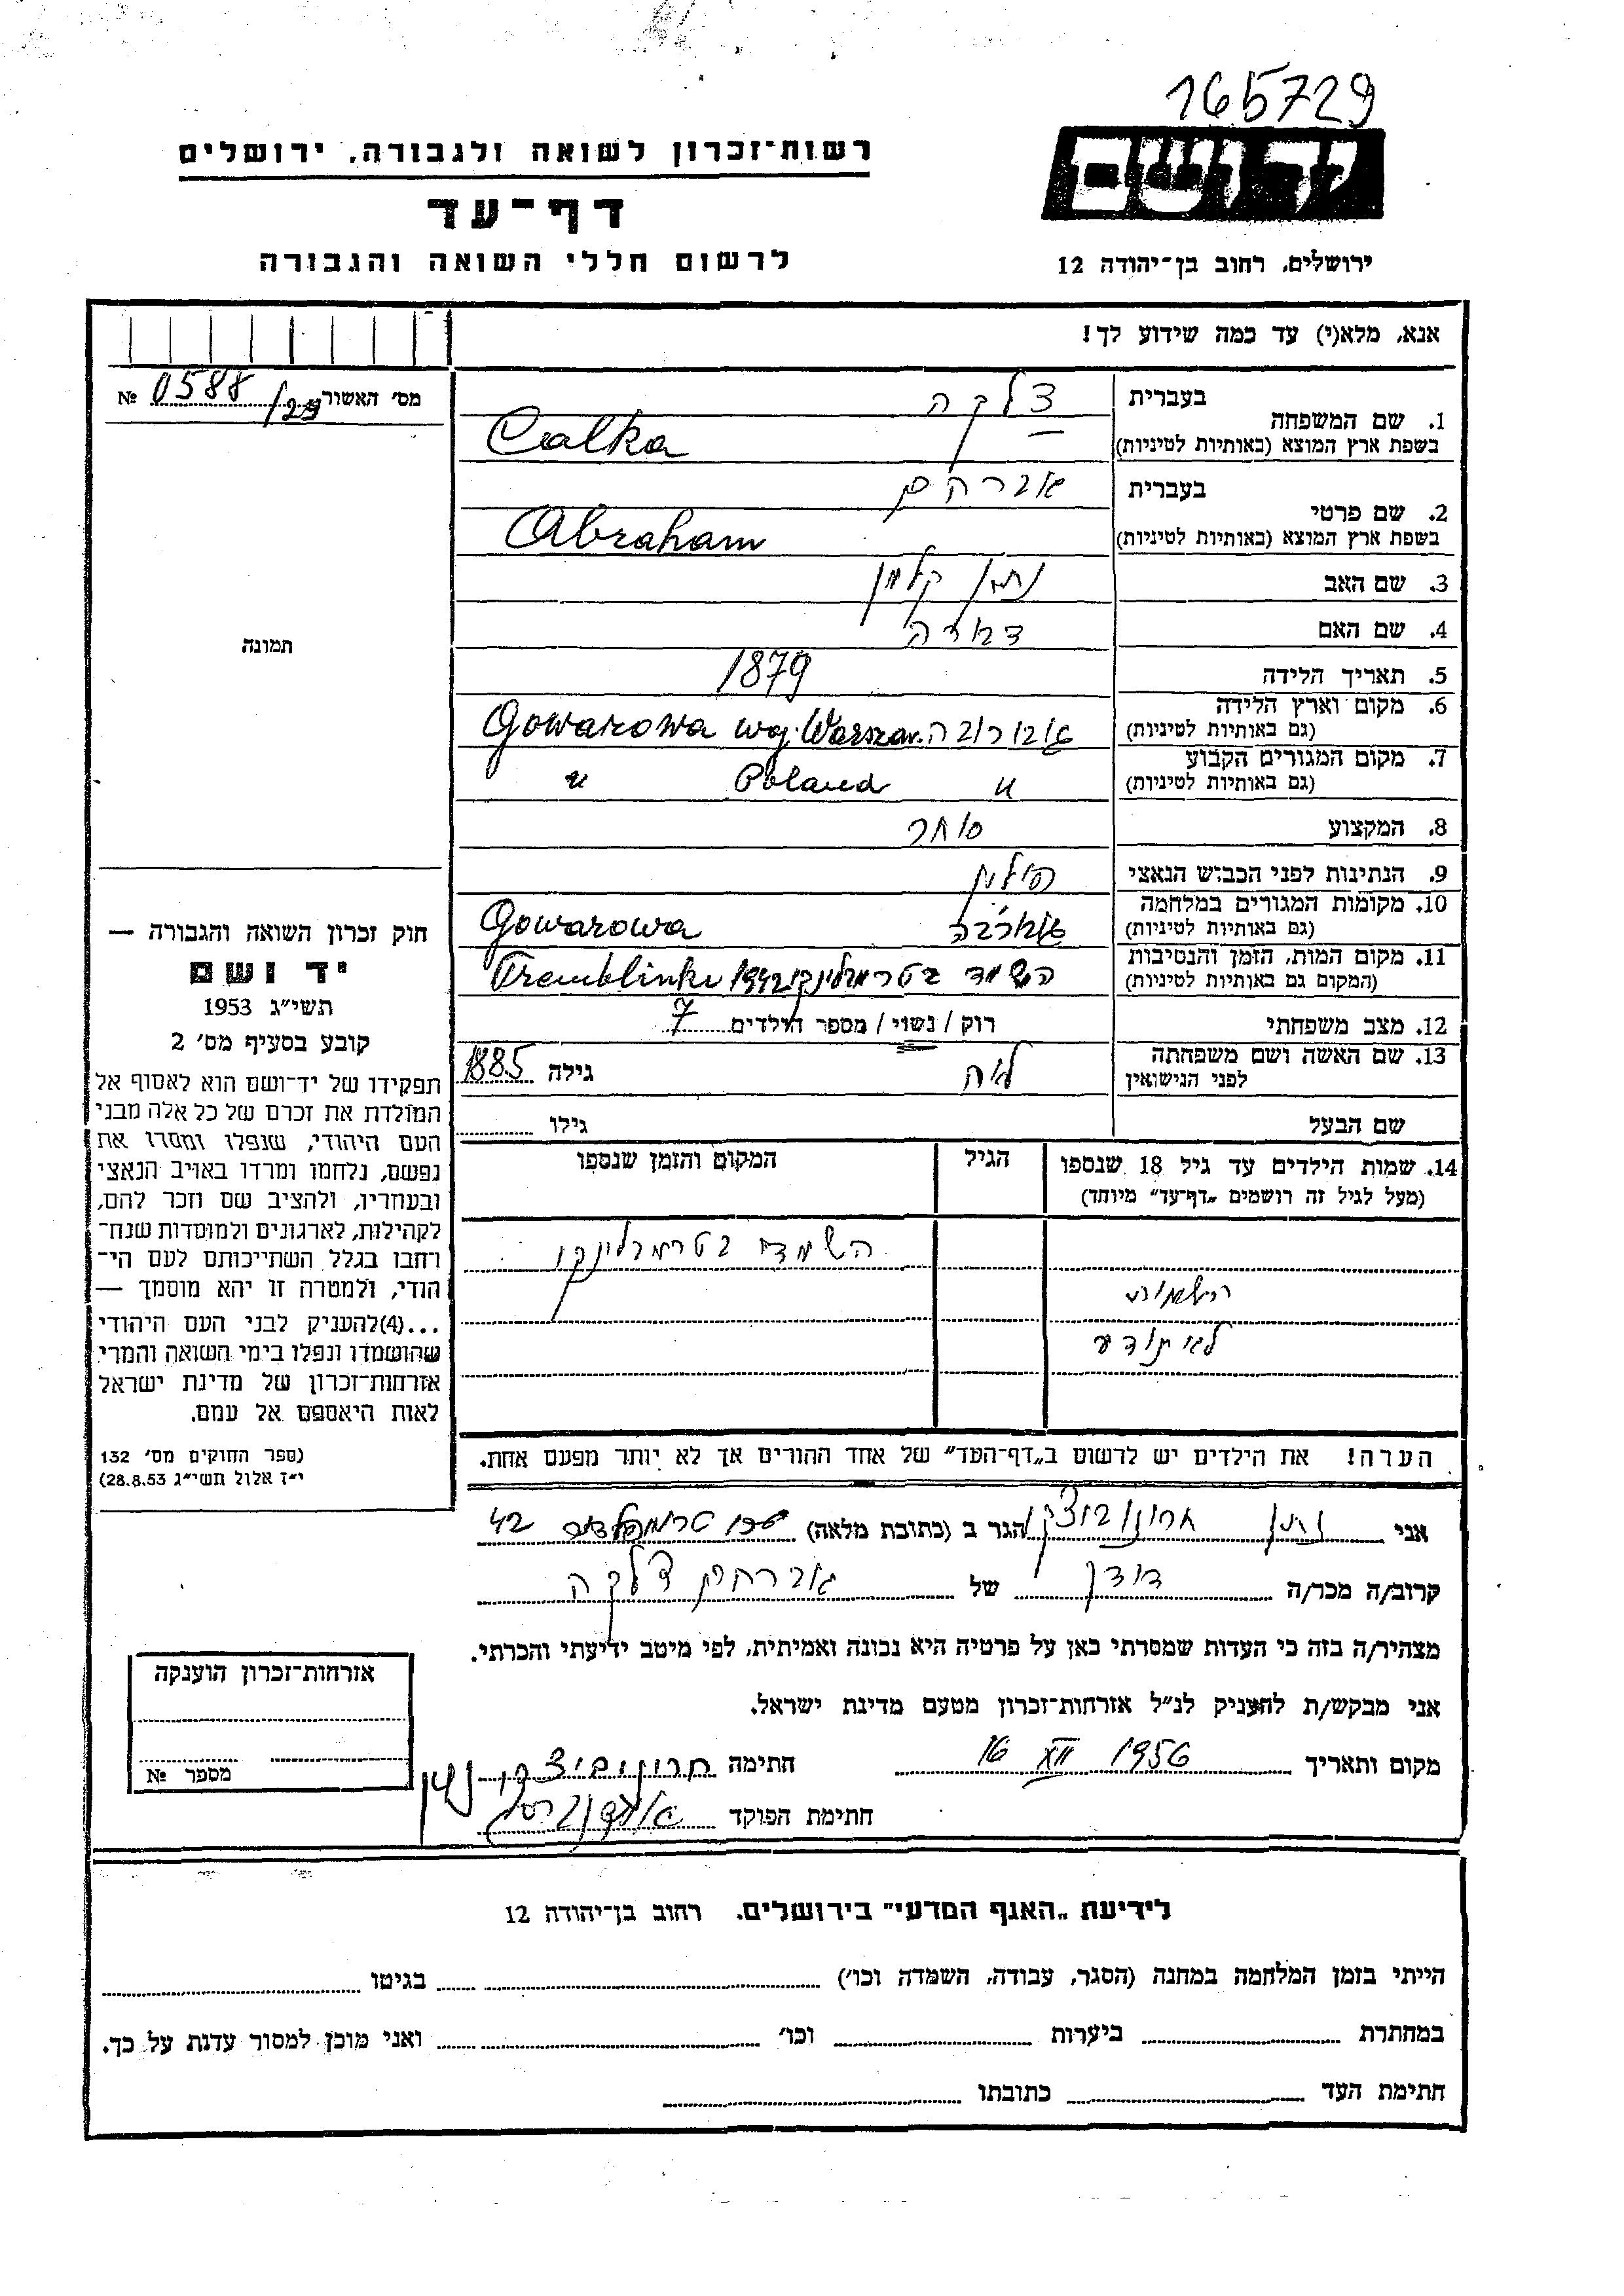 165729
יד ושם
רשות־זכרון לשואה ולגבורה, ירושלים
דף־עד
לרשום חללי השואה והגבורה
ירושלים, רחוב בן־יהודה 12
אנא, מלא(י) עד כמה שידוע לך!
מס' האשור № 0588/29
תמונה
1. שם המשפחה
בעברית צלקה
בשפת ארץ המוצא (באותיות לטיניות) Calka
2. שם פרטי
בעברית אברהם
בשפת ארץ המוצא (באותיות לטיניות) Abraham
3. שם האב נתן קלמן
4. שם האם
5. תאריך הלידה 1879
6. מקום וארץ הלידה
(גם באותיות לטיניות) גוברובה Gowarowa woj. Warszaw.
7. מקום המגורים הקבוע
(גם באותיות לטיניות) " Poland "
8. המקצוע סוחר
9. הנתינות לפני הכבוש הנאצי פולין
10. מקומות המגורים במלחמה
(גם באותיות לטיניות) Gowarowa
11. מקום המות, הזמן והנסיבות
(המקום גם באותיות לטיניות) השמד בטרמבלינקי 1942 Tremblinki
12. מצב משפחתי רוק / נשוי / מספר הילדים 7
13. שם האשה ושם משפחתה
לפני הנישואין לאה גילה 1885
שם הבעל גילו
14. שמות הילדים עד גיל 18 שנספו
(מעל לגיל זה רושמים „דף־עד" מיוחד)
הגיל
המקום והזמן שנספו
השמד בטרמבלינקי
השמות
לא תודע
הערה! את הילדים יש לרשום ב„דף־העד" של אחד ההורים אך לא יותר מפעם אחת.
חוק זכרון השואה והגבורה —
יד ושם
תשי"ג 1953
קובע בסעיף מס' 2
תפקידו של יד־ושם הוא לאסוף אל
המולדת את זכרם של כל אלה מבני
העם היהודי, שנפלו ומסרו את
נפשם, נלחמו ומרדו באויב הנאצי
ובעוזריו, ולהציב שם וזכר להם,
לקהילות, לארגונים ולמוסדות שנח־
רבו בגלל השתייכותם לעם הי־
הודי, ולמטרה זו יהא מוסמך —
...(4)להעניק לבני העם היהודי
שהושמדו ונפלו בימי השואה והמרי
אזרחות־זכרון של מדינת ישראל
לאות היאספם אל עמם.
(ספר החוקים מס' 132
י"ז אלול תשי"ג 28.8.53)
אני נתן ארונוביצקי הגר ב (כתובת מלאה) טרומפלדור 42
קרוב/ה מכר/ה דודן של אברהם צלקה
מצהיר/ה בזה כי העדות שמסרתי כאן על פרטיה היא נכונה ואמיתית, לפי מיטב ידיעתי והכרתי.
אני מבקש/ת להעניק לנ"ל אזרחות־זכרון מטעם מדינת ישראל.
מקום ותאריך 16 XII 1956 חתימה ארונוביצקי נתן
חתימת הפוקד
אזרחות־זכרון הוענקה
מספר №
לידיעת „האגף המדעי" בירושלים. רחוב בן־יהודה 12
הייתי בזמן המלחמה במחנה (הסגר, עבודה, השמדה וכו') בגיטו
במחתרת ביערות וכו' ואני מוכן למסור עדות על כך.
חתימת העד כתובתו